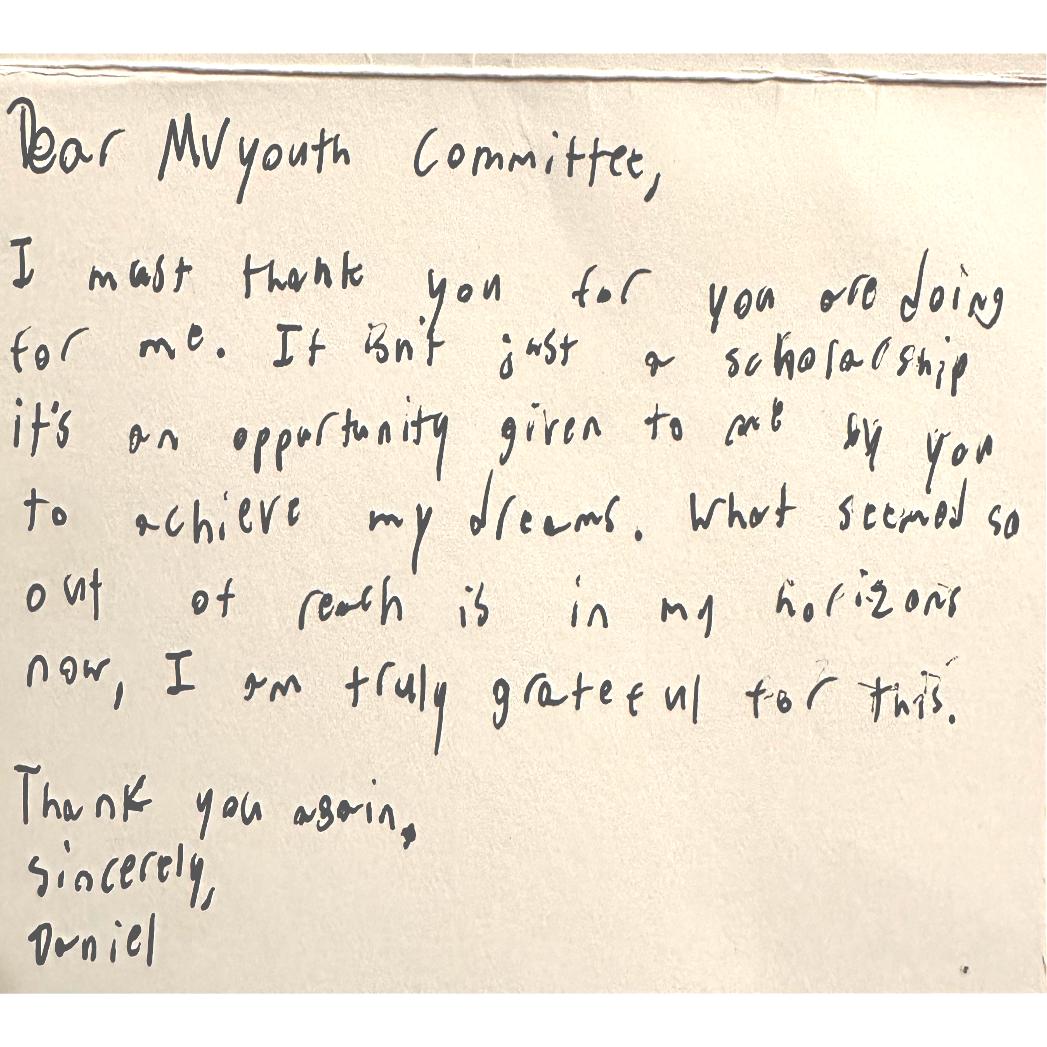 Dear MVyouth Committee,
I must thank you for you are doing
for me. It isn't just a scholarship
it's an opportunity given to me by you
to achieve my dreams. What seemed so
out of reach is in my horizons
now, I am truly grateful for this.
Thank you again,
Sincerely,
Daniel